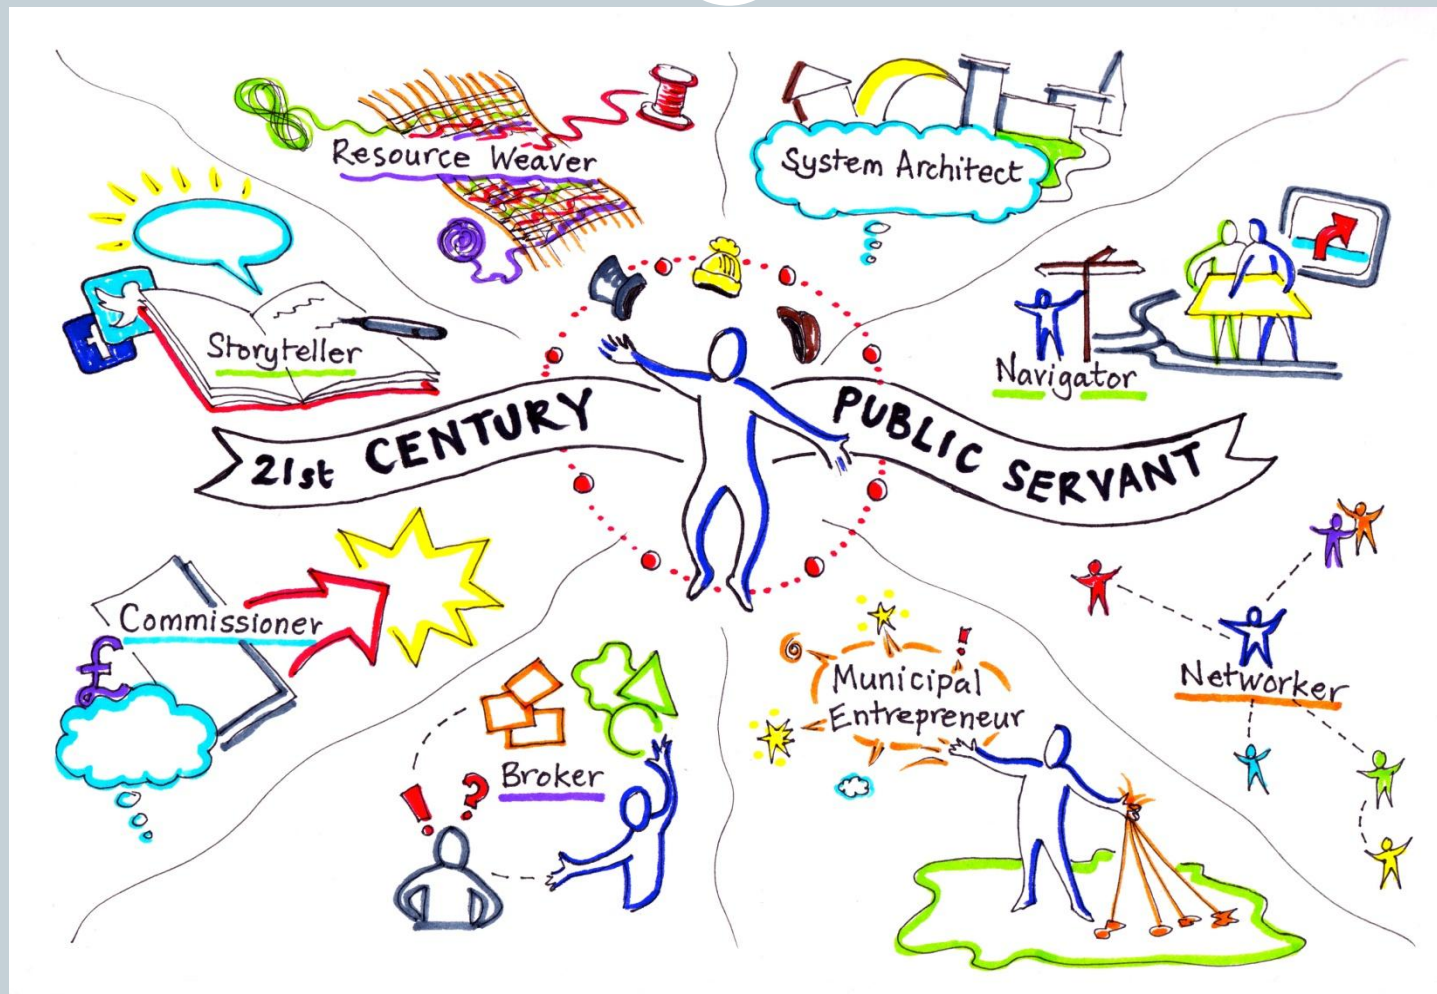 Resource Weaver
System Architect
Storyteller
Navigator
21st CENTURY
PUBLIC SERVANT
Commissioner
£
Broker
! ?
!
Municipal
Entrepreneur
Networker
f